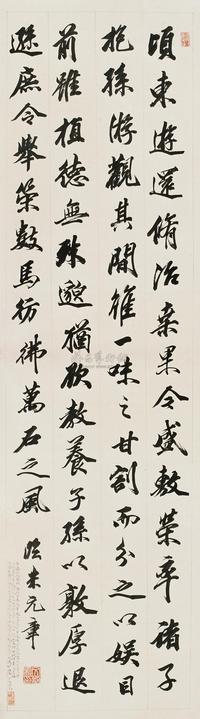 頃東遊還脩治桑果今盛敷榮率諸子
抱孫游觀其間雖一味之甘割而分之以娛目
前雖植德無殊邈猶欲教養子孫以敦厚退
遜庶令舉策數馬彷彿萬石之風
臨米元章